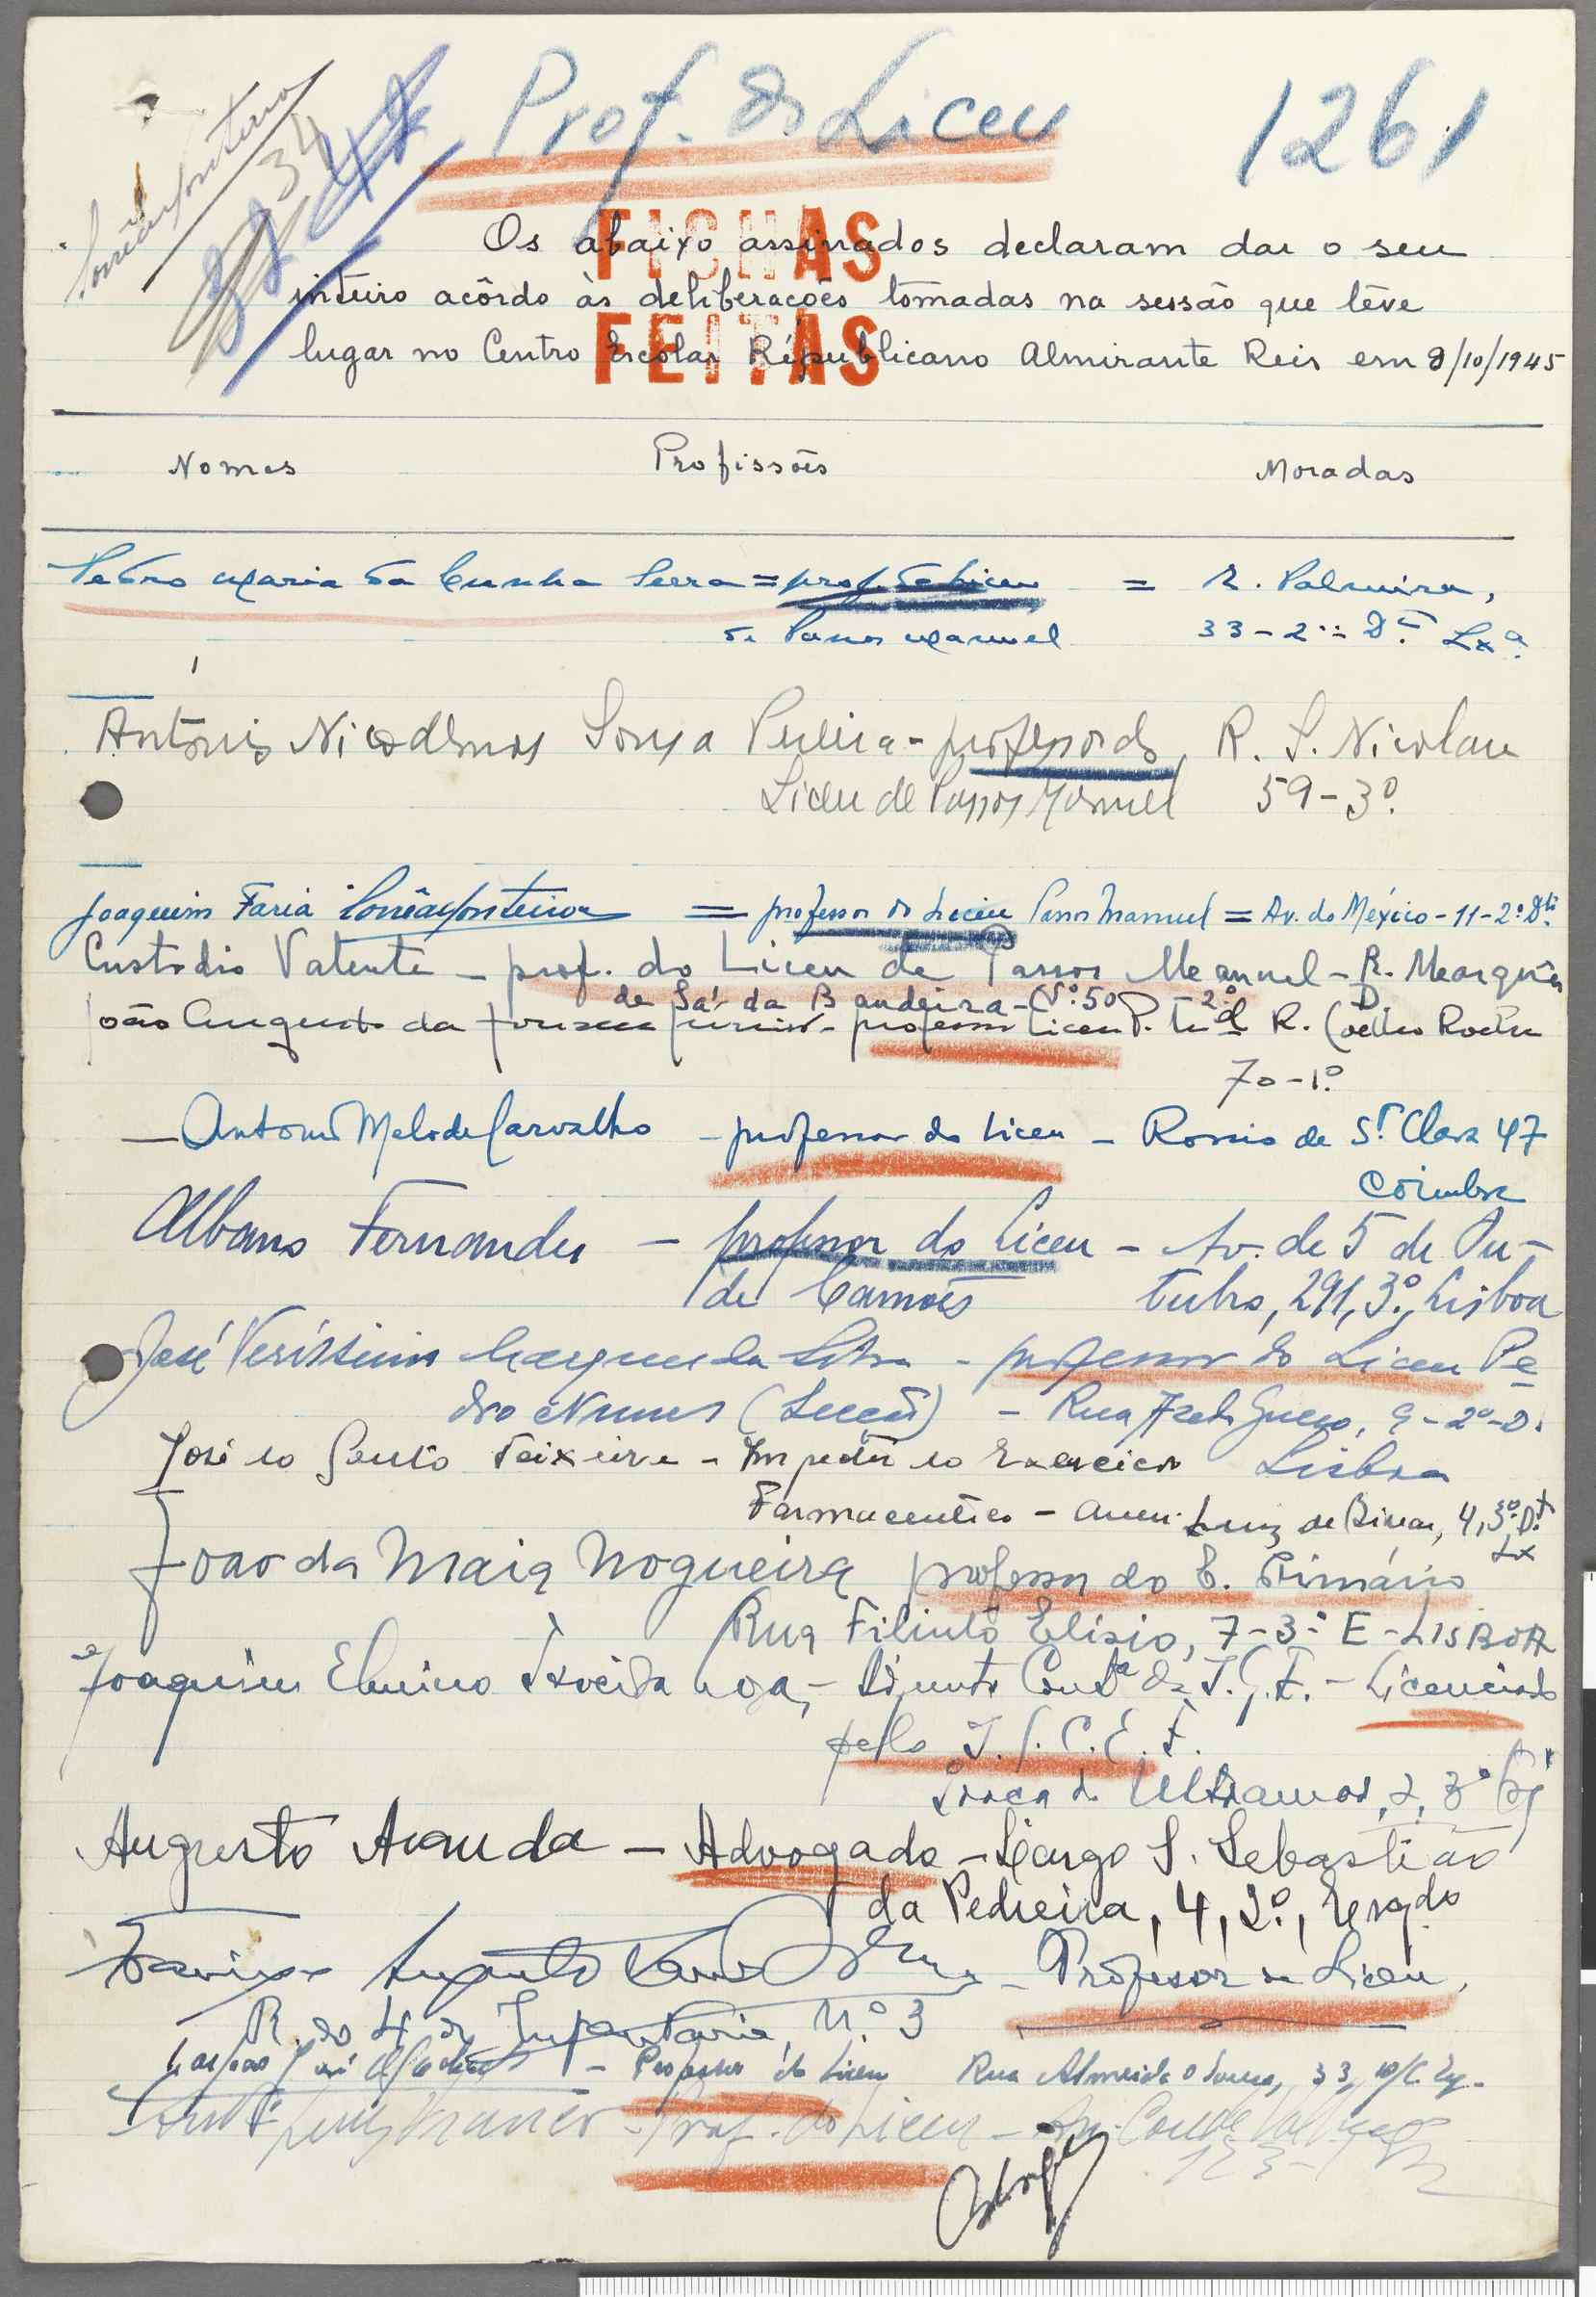 Prof. do Liceu
1261
Corrêa Monteiro
34
FICHAS
FEITAS
Os abaixo assinados declaram dar o seu
inteiro acôrdo às deliberações tomadas na sessão que têve
lugar no Centro Escolar Républicano Almirante Reis em 8/10/1945
Nomes Profissões Moradas
Pedro Maria da Cunha Serra = prof. do Liceu = R. Palmira,
de Passos Manuel 33-2º Dt. Lxa.
António Nicodemos Sousa Pereira - professor do R. S. Nicolau
Liceu de Passos Manuel 59-3º.
Joaquim Faria Corrêa Monteiro = professor do Liceu Passos Manuel = Av. do México - 11-2º. Dto.
Custodio Valente - prof. do Liceu de Passos Manuel - R. Marquês
de Sá da Bandeira - Nº. 50 2º. D.
João Augusto da Fonseca Júnior - professor Liceu P. R. Coelho Rocha
70-1º.
- Antonio Melo de Carvalho - professor do Liceu - Rossio de Sta. Clara 47
Coimbra
Albano Fernandes - professor do Liceu - Av. de 5 de Ou-
de Camões tubro, 291, 3º, Lisboa
José Veríssimo da Silva - professor do Liceu Pe
dro Nunes (Secção) - Rua 9-2º-D.
José do Souto Teixeira - Inspector do Exercicio Lisboa
Farmaceutico - Luiz de Bivar, 4, 3º. Dt.
Lx
João da Maia Nogueira professor do E. Primário
Rua Filinto Elísio, 7-3º E - LISBOA
Joaquim - Licenciado
pelo
do Ultramar, 2, 3º
Augusto Aranda - Advogado - Largo S. Sebastião
da Pedreira, 4, 2º., Esqdo
Augusto - Professor do Liceu,
R. do 4 de Infantaria, N.º 3
José - Professor do Liceu Rua Almeida e Sousa, 33, r/c. Esq.
- Prof. do Liceu - Av. Conde
123